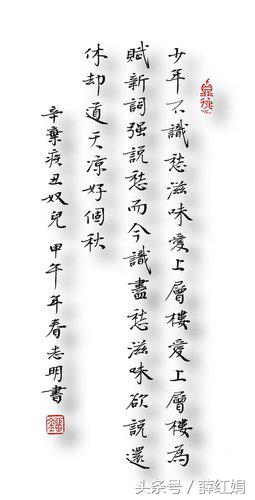 少年不識愁滋味愛上層樓愛上層樓為
賦新詞强說愁而今識盡愁滋味欲說還
休却道天凉好個秋
辛棄疾丑奴兒 甲午年春志明書
头条号／薛红娟